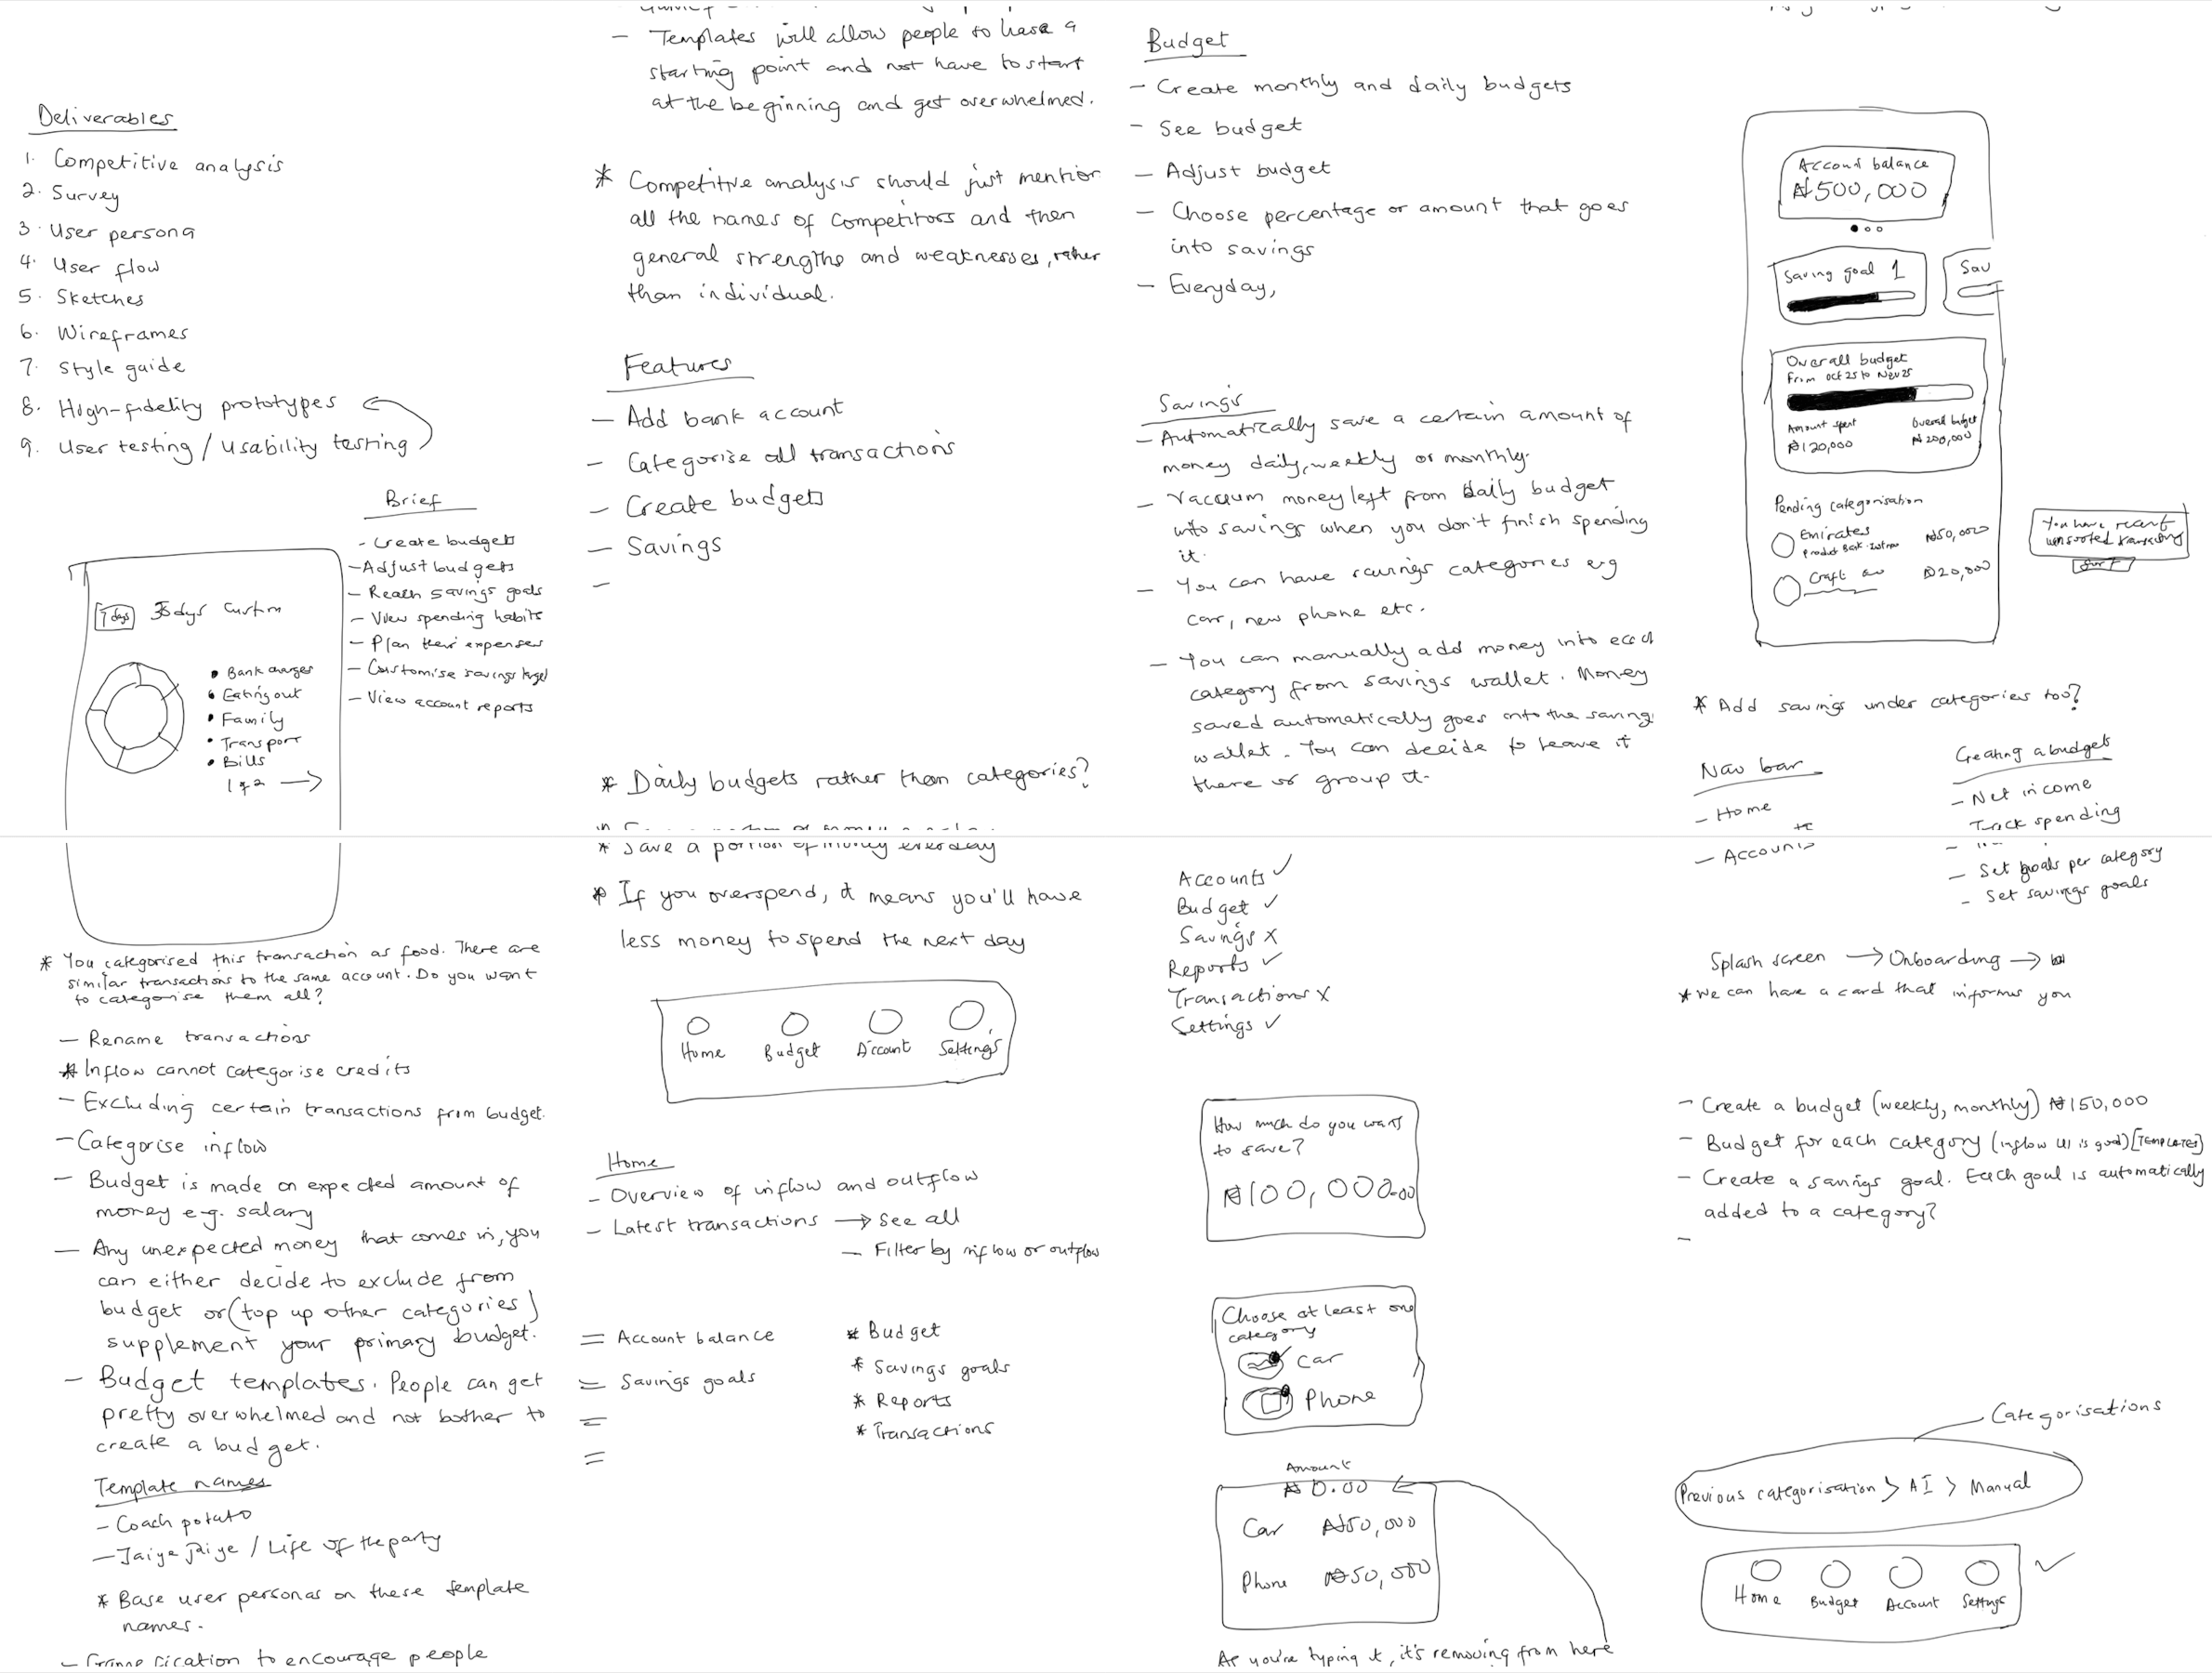 Deliverables
1. Competitive analysis
2. Survey
3. User persona
4. User flow
5. Sketches
6. Wireframes
7. Style guide
8. High-fidelity prototypes
9. User testing / usability testing
Brief
- Create budgets
- Adjust budgets
- Reach savings goals
- View spending habits
- Plan their expenses
- Customise savings target
- View account reports
7 days
days Custom
• Bank charges
• Eating out
• Family
• Transport
• Bills
1 of 2 →
* You categorised this transaction as food. There are
similar transactions to the same account. Do you want
to categorise them all?
- Rename transactions
* Inflow cannot categorise credits
- Excluding certain transactions from budget.
- Categorise inflow
- Budget is made on expected amount of
money e.g. salary
- Any unexpected money that comes in, you
can either decide to exclude from
budget or (top up other categories)
supplement your primary budget.
- Budget templates. People can get
pretty overwhelmed and not bother to
create a budget.
Template names
- Coach potato
- Jaiye Jaiye / Life of the party
* Base user personas on these template
names.
- Gamification to encourage people
- Templates will allow people to have a
starting point and not have to start
at the beginning and get overwhelmed.
* Competitive analysis should just mention
all the names of Competitors and then
general strengths and weaknesses, rather
than individual.
Features
- Add bank account
- Categorise all transactions
- Create budgets
- Savings
-
* Daily budgets rather than categories?
* Save a portion of money everyday
* If you overspend, it means you'll have
less money to spend the next day
Home Budget Account Settings
Home
- Overview of inflow and outflow
- Latest transactions → See all
- Filter by inflow or outflow
= Account balance
= Savings goals
=
=
* Budget
* Savings goals
* Reports
* Transactions
Budget
- Create monthly and daily budgets
- See budget
- Adjust budget
- Choose percentage or amount that goes
into savings
- Everyday,
Savings
- Automatically save a certain amount of
money daily, weekly or monthly.
- Vacuum money left from daily budget
into savings when you don't finish spending
it.
- You can have savings categories e.g
car, new phone etc.
- You can manually add money into each
category from savings wallet. Money
saved automatically goes into the saving
wallet. You can decide to leave it
there or group it.
Accounts ✓
Budget ✓
Savings x
Reports ✓
Transactions x
Settings ✓
How much do you want
to save?
₦100,000.00
Choose at least one
category
Car
Phone
Amount
₦0.00
Car ₦50,000
Phone ₦50,000
As you're typing it, it's removing from here
Account balance
₦500,000
Saving goal 1
Sav
Overall budget
From Oct 25 to Nov 25
Amount spent Overall budget
₦120,000 ₦200,000
Pending categorisation
Emirates ₦50,000
Craft ₦20,000
You have recent
unsorted transactions
Sort
* Add savings under categories too?
Nav bar
- Home
- Accounts
Creating a budget
- Net income
Track spending
- Set goals per category
- Set savings goals
Splash screen → Onboarding →
* We can have a card that informs you
- Create a budget (weekly, monthly) ₦150,000
- Budget for each category (inflow UI is good) [TEMPLATES]
- Create a savings goal. Each goal is automatically
added to a category?
-
Categorisations
Previous categorisation > AI > Manual
Home Budget Account Settings ✓